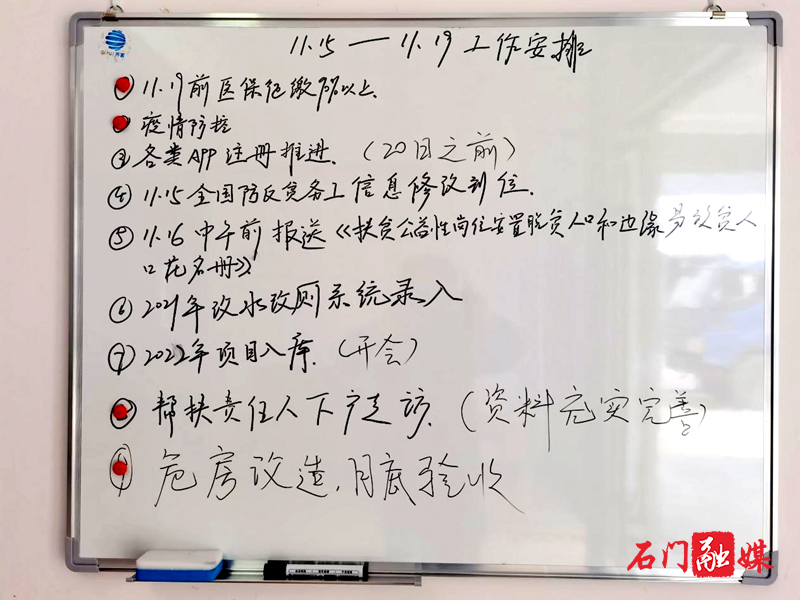 11.15 — 11.19 工作安排
11.19前医保征缴90%以上.
疫情防控
③ 各类APP注册推进. (20日之前)
④ 11.15全国防反贫务工信息修改到位.
⑤ 11.16中午前报送《扶贫公益性岗位安置脱贫人口和边缘易致贫人
口花名册》
⑥ 2021年改水改厕系统录入
⑦ 2022年项目入库. (开会)
帮扶责任人下户走访. (资料充实完善)
⑨ 危房改造, 月底验收
石门融媒